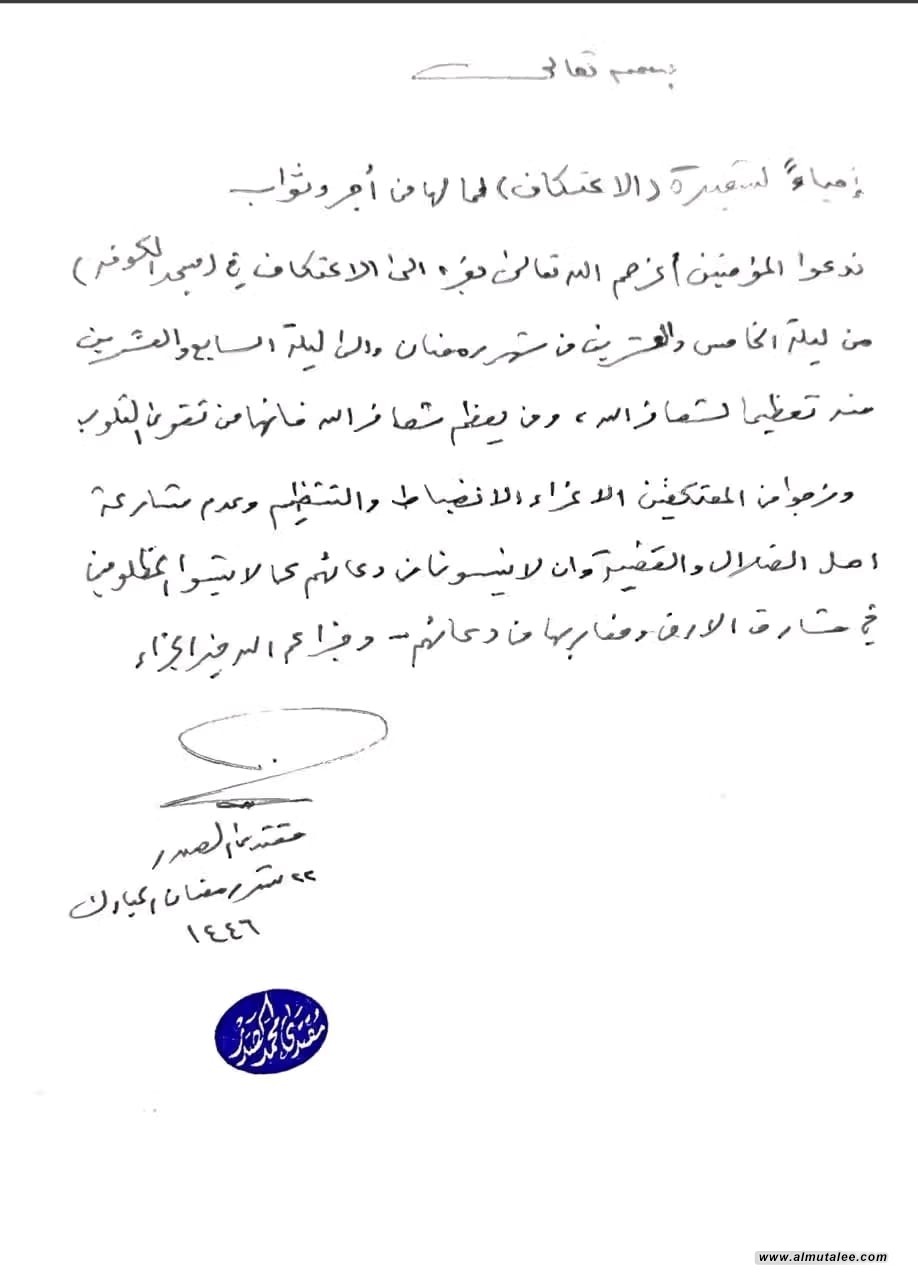 بسمه تعالى
إحياءً لشعيرة (الاعتكاف) لما لها من أجر وثواب
ندعوا المؤمنين أعزهم الله تعالى بعزه الى الاعتكاف في (مسجد الكوفه)
من ليلة الخامس والعشرين من شهر رمضان والى ليلة السابع والعشرين
منه تعظيما لشعائر الله ، ومن يعظم شعائر الله فانها من تقوى القلوب
ونرجوا من المعتكفين الاعزاء الانضباط والتنظيم وعدم
اهل الضلال وان لا ينسونا من دعائهم كما لا ينسوا المظلومين
في مشارق الارض ومغاربها من دعائهم - وجزاهم الله خير الجزاء
مقتدى الصدر
٢٢ شهر رمضان المبارك
١٤٤٦
مقتدى محمد الصدر
www.almutalee.com